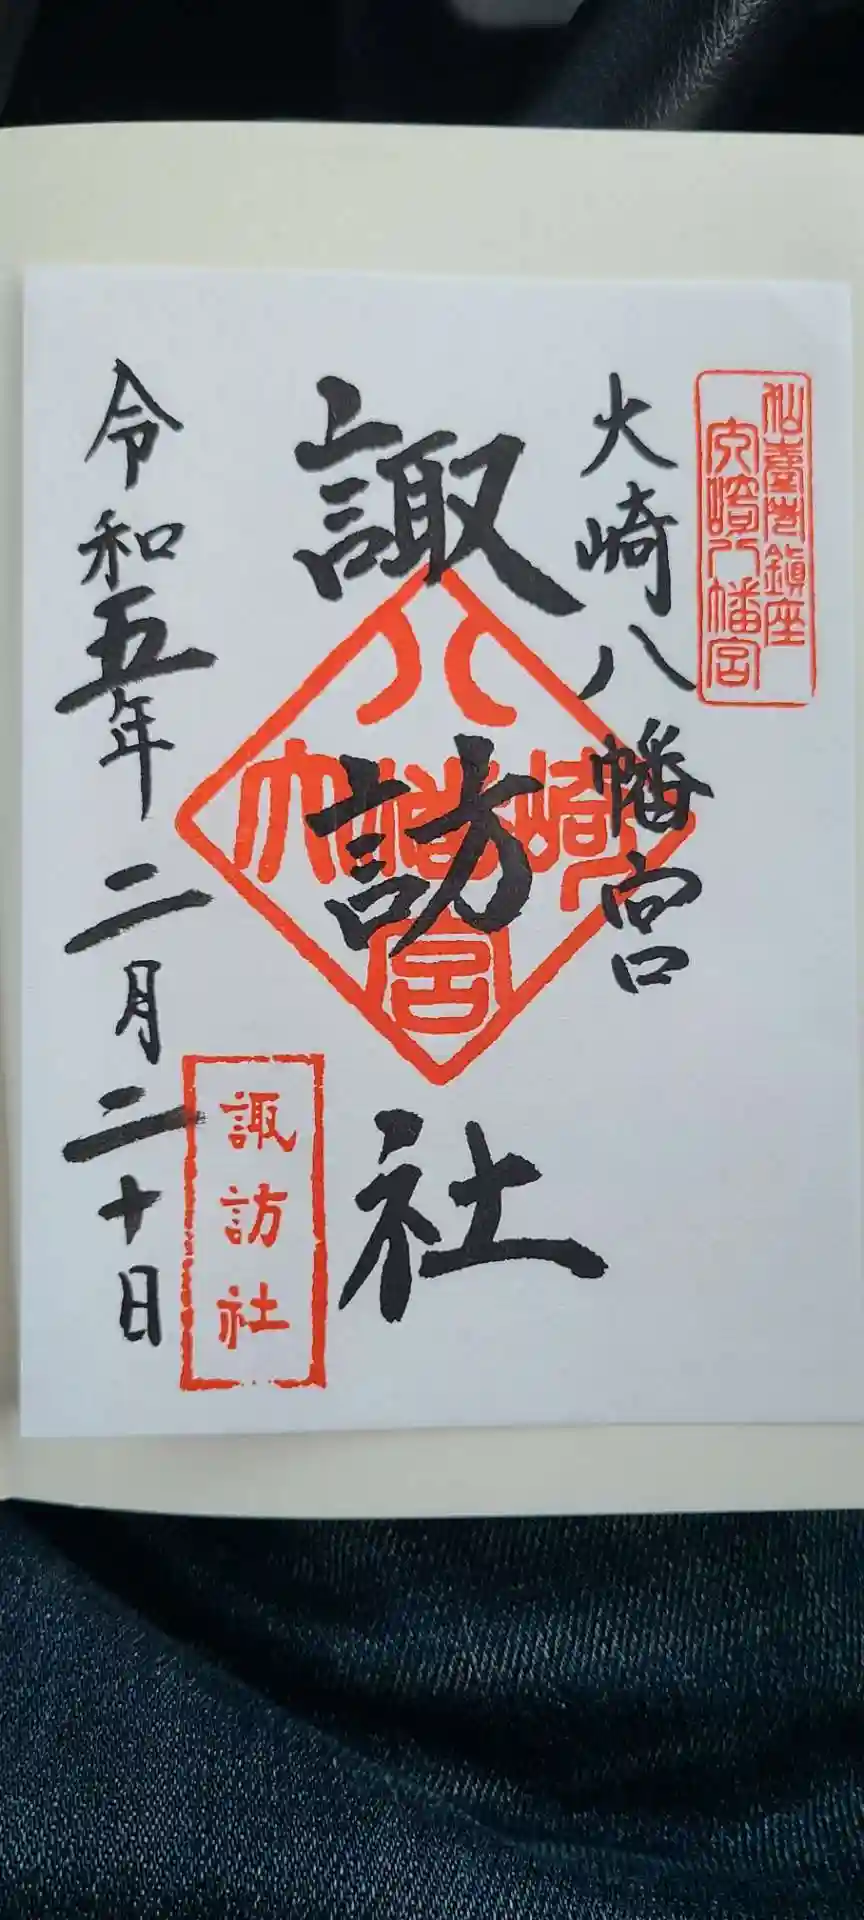 仙臺鎮座
大崎八幡宮
大崎八幡宮
諏訪社
大崎八幡宮
諏訪社
令和五年二月二十日